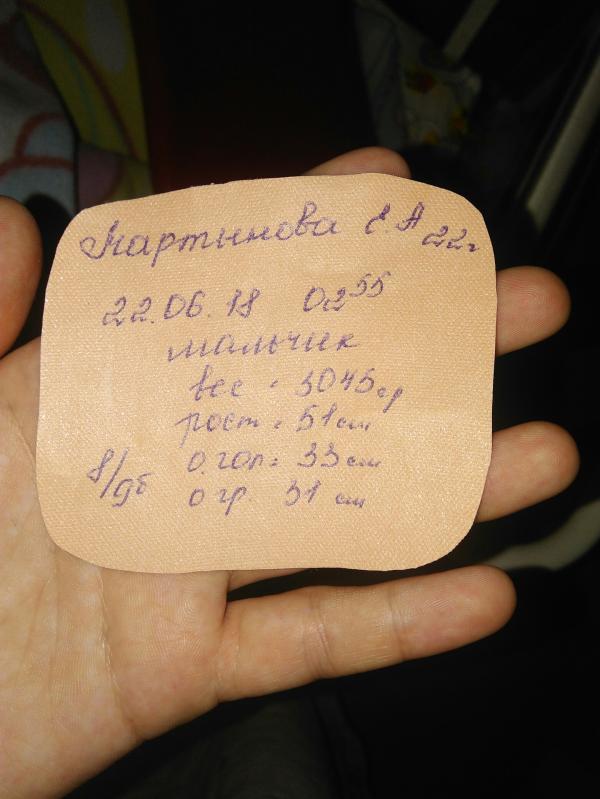 Мартынова Е А 22г
22.06.18 02⁵⁵
мальчик
вес = 3045гр
рост = 51см
о.гол = 33см
8/9б о гр. 31 см